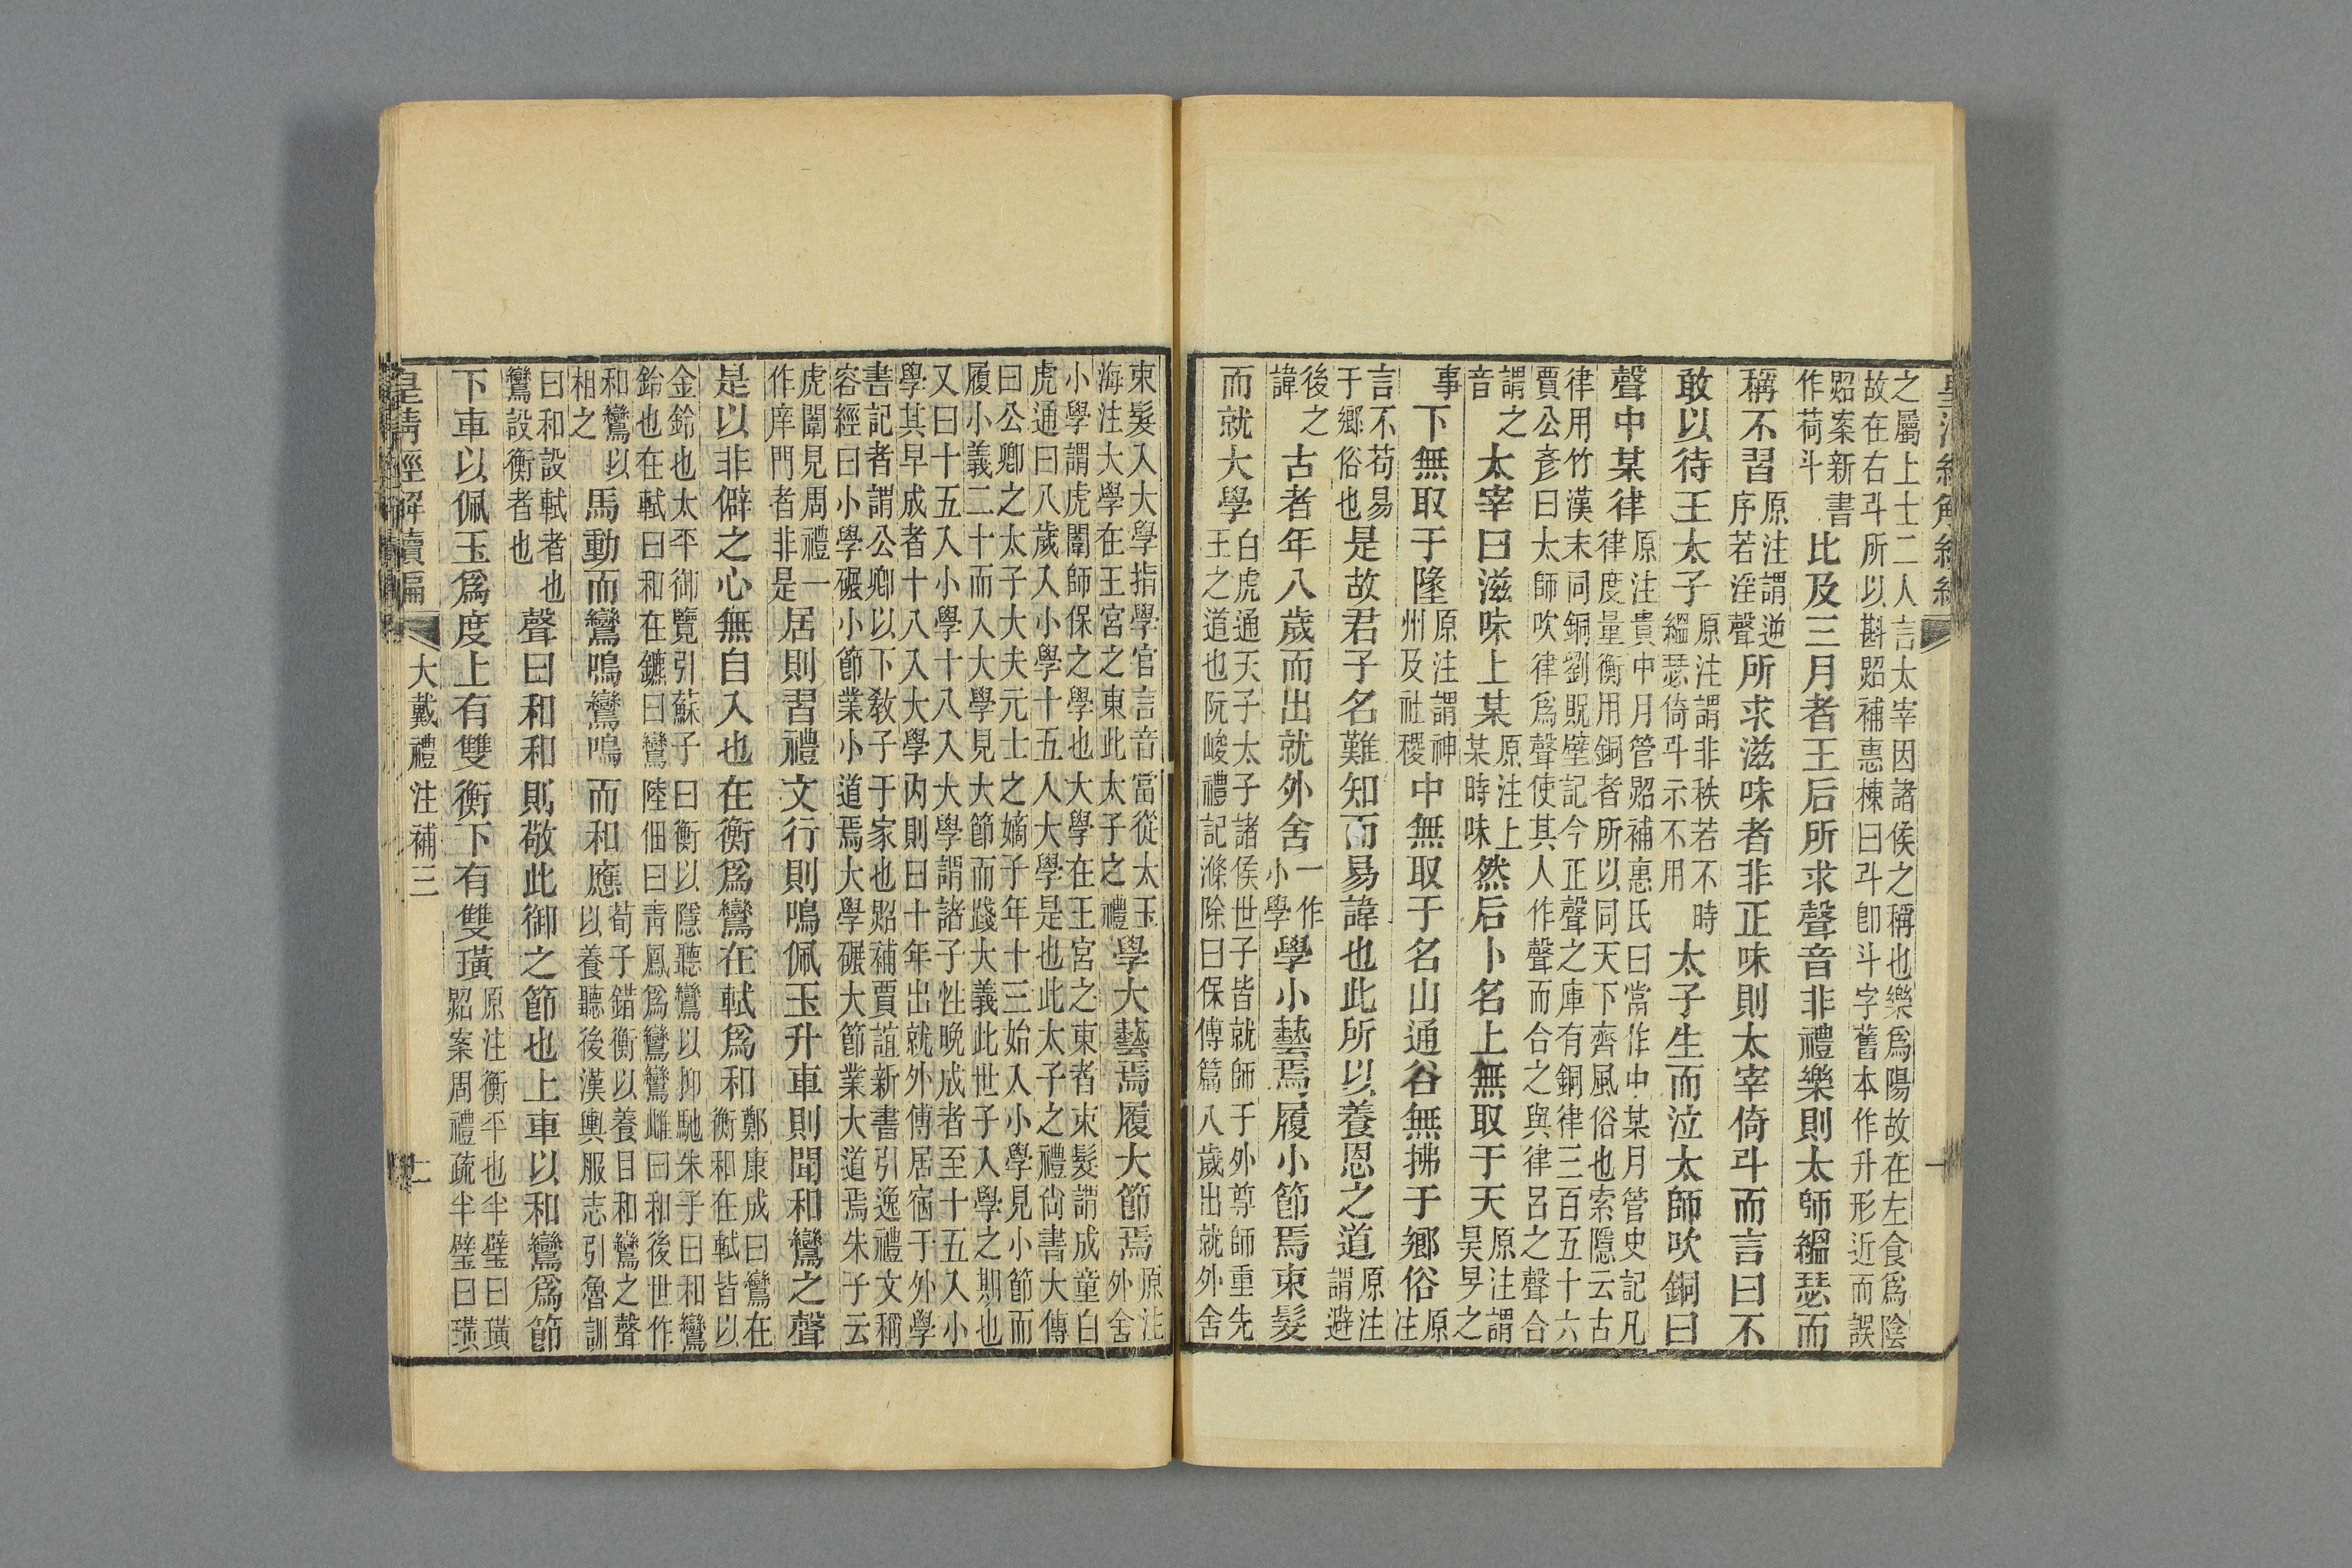 之屬上士二人言太宰因諸侯之稱也樂爲陽故在左食爲陰
故在右斗所以斟貂補惠棟曰斗卽斗字舊本作升形近而誤
貂案新書
作荷斗
比及三月者王后所求聲音非禮樂則太師縕瑟而
稱不習
原注謂逆
序若淫聲
所求滋味者非正味則太宰倚斗而言曰不
敢以待王太子
原注謂非秩若不時
縕瑟倚斗示不用
太子生而泣太師吹銅曰
聲中某律
原注貴中月管貂補惠氏曰當作中某月管史記凡
律度量衡用銅者所以同天下齊風俗也索隱云古
律用竹漢末同銅劉貺壁記今正聲之庫有銅律三百五十六
賈公彥曰太師吹律爲聲使其人作聲而合之與律呂之聲合
謂之
音
太宰曰滋味上某
原注上
某時味
然后卜名上無取于天
原注謂
昊旻之
事
下無取于墬
原注謂神
州及社稷
中無取于名山通谷無拂于鄉俗
原
注
言不苟易
于鄉俗也
是故君子名難知而易諱也此所以養恩之道
原注
謂避
後之
諱
古者年八歲而出就外舍
一作
小學
學小藝焉履小節焉束髮
而就大學
白虎通天子太子諸侯世子皆就師于外尊師重先
王之道也阮峻禮記滌除曰保傅篇八歲出就外舍
束髮入大學指學官言音當從太玉
海注大學在王宮之東此太子之禮
學大藝焉履大節焉
原注
外舍
小學謂虎闈師保之學也大學在王宮之東者束髮謂成童白
虎通曰八歲入小學十五入大學是也此太子之禮尚書大傳
曰公卿之太子大夫元士之嫡子年十三始入小學見小節而
履小義二十而入大學見大節而踐大義此世子入學之期也
又曰十五入小學十八入大學謂諸子性晚成者至十五入小
學其早成者十八入大學内則曰十年出就外傅居宿于外學
書記者謂公卿以下敎子于家也貂補賈誼新書引逸禮文稱
容經曰小學碾小節業小道焉大學碾大節業大道焉朱子云
虎闈見周禮一
作庠門者非是
居則習禮文行則鳴佩玉升車則聞和鸞之聲
是以非僻之心無自入也在衡爲鸞在軾爲和
鄭康成曰鸞在
衡和在軾皆以
金鈴也太平御覽引蘇子曰衡以隱聽鸞以抑馳朱子曰和鸞
鈴也在軾曰和在鑣曰鸞陸佃曰靑鳳爲鸞鸞雌曰和後世作
和鸞以
相之
馬動而鸞鳴鸞鳴而和應
荀子錯衡以養目和鸞之聲
以養聽後漢輿服志引魯訓
曰和設軾者也
鸞設衡者也
聲曰和和則敬此御之節也上車以和鸞爲節
下車以佩玉爲度上有雙衡下有雙璜
原注衡平也半璧曰璜
貂案周禮疏半璧曰璜
皇淸經解續編
大戴禮注補三
二